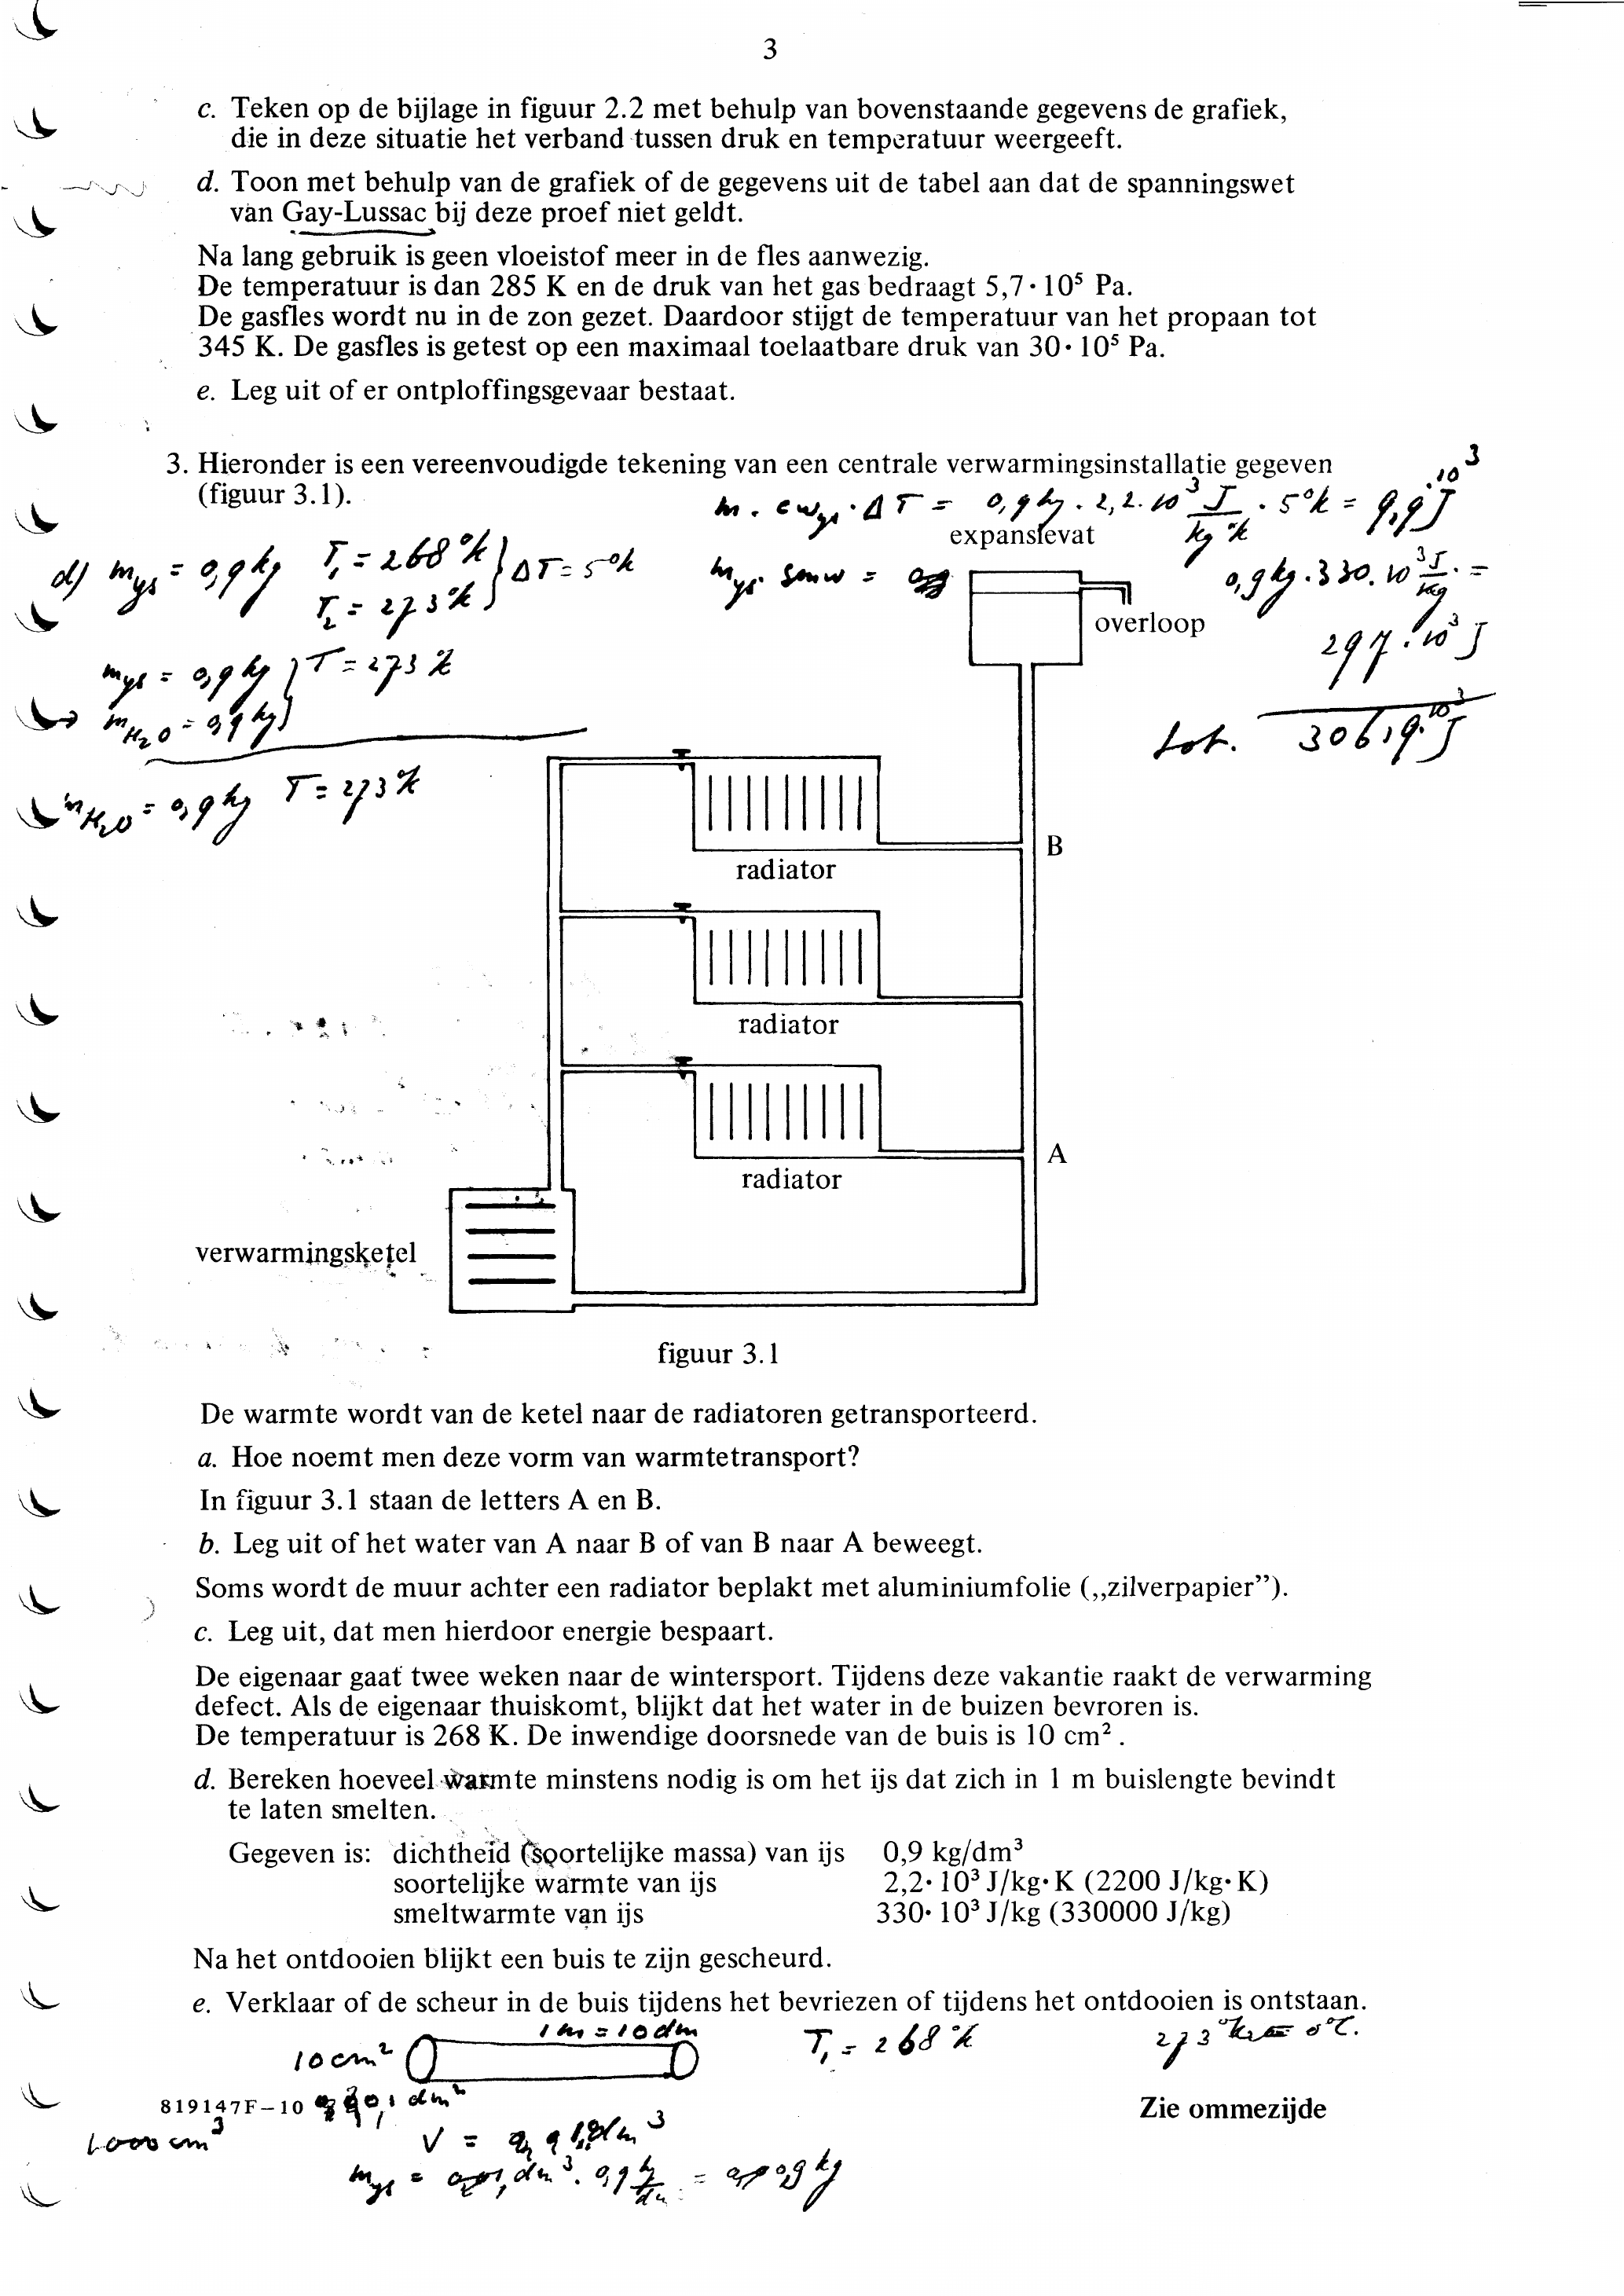 3
c. Teken op de bijlage in figuur 2.2 met behulp van bovenstaande gegevens de grafiek,
die in deze situatie het verband tussen druk en temperatuur weergeeft.
d. Toon met behulp van de grafiek of de gegevens uit de tabel aan dat de spanningswet
van Gay-Lussac bij deze proef niet geldt.
Na lang gebruik is geen vloeistof meer in de fles aanwezig.
De temperatuur is dan 285 K en de druk van het gas bedraagt 5,7 · 10⁵ Pa.
De gasfles wordt nu in de zon gezet. Daardoor stijgt de temperatuur van het propaan tot
345 K. De gasfles is getest op een maximaal toelaatbare druk van 30 · 10⁵ Pa.
e. Leg uit of er ontploffingsgevaar bestaat.
3. Hieronder is een vereenvoudigde tekening van een centrale verwarmingsinstallatie gegeven
(figuur 3.1).
m . c w ys · ΔT = 0,9 kg . 2,2 . 10³ J/kg °k . 5 °k = 9,9 .10³ J
expansievat
d) m ys = 0,9 kg T₁ = 268 °k } ΔT = 5 °k
T₂ = 273 °k
m ys . smw =
0,9 kg . 330 . 10³ J/kg . =
overloop
297 . 10³ J
m ys = 0,9 kg } T = 273 °k
→ m H₂O = 0,9 kg }
tot. 306,9 . 10³ J
m H₂O = 0,9 kg T = 273 °k
B
radiator
radiator
A
radiator
verwarmingsketel
figuur 3.1
De warmte wordt van de ketel naar de radiatoren getransporteerd.
a. Hoe noemt men deze vorm van warmtetransport?
In figuur 3.1 staan de letters A en B.
b. Leg uit of het water van A naar B of van B naar A beweegt.
Soms wordt de muur achter een radiator beplakt met aluminiumfolie („zilverpapier”).
c. Leg uit, dat men hierdoor energie bespaart.
De eigenaar gaat twee weken naar de wintersport. Tijdens deze vakantie raakt de verwarming
defect. Als de eigenaar thuiskomt, blijkt dat het water in de buizen bevroren is.
De temperatuur is 268 K. De inwendige doorsnede van de buis is 10 cm².
d. Bereken hoeveel warmte minstens nodig is om het ijs dat zich in 1 m buislengte bevindt
te laten smelten.
Gegeven is: dichtheid (soortelijke massa) van ijs 0,9 kg/dm³
soortelijke warmte van ijs 2,2· 10³ J/kg· K (2200 J/kg· K)
smeltwarmte van ijs 330· 10³ J/kg (330000 J/kg)
Na het ontdooien blijkt een buis te zijn gescheurd.
e. Verklaar of de scheur in de buis tijdens het bevriezen of tijdens het ontdooien is ontstaan.
1 m = 10 dm
10 cm² T₁ = 268 °k 273 °k = 0 °C.
819147F-10 0,1 dm² Zie ommezijde
1000 cm³
V = 1 dm³
m ys = 1 dm³ . 0,9 kg/dm = 0,9 kg